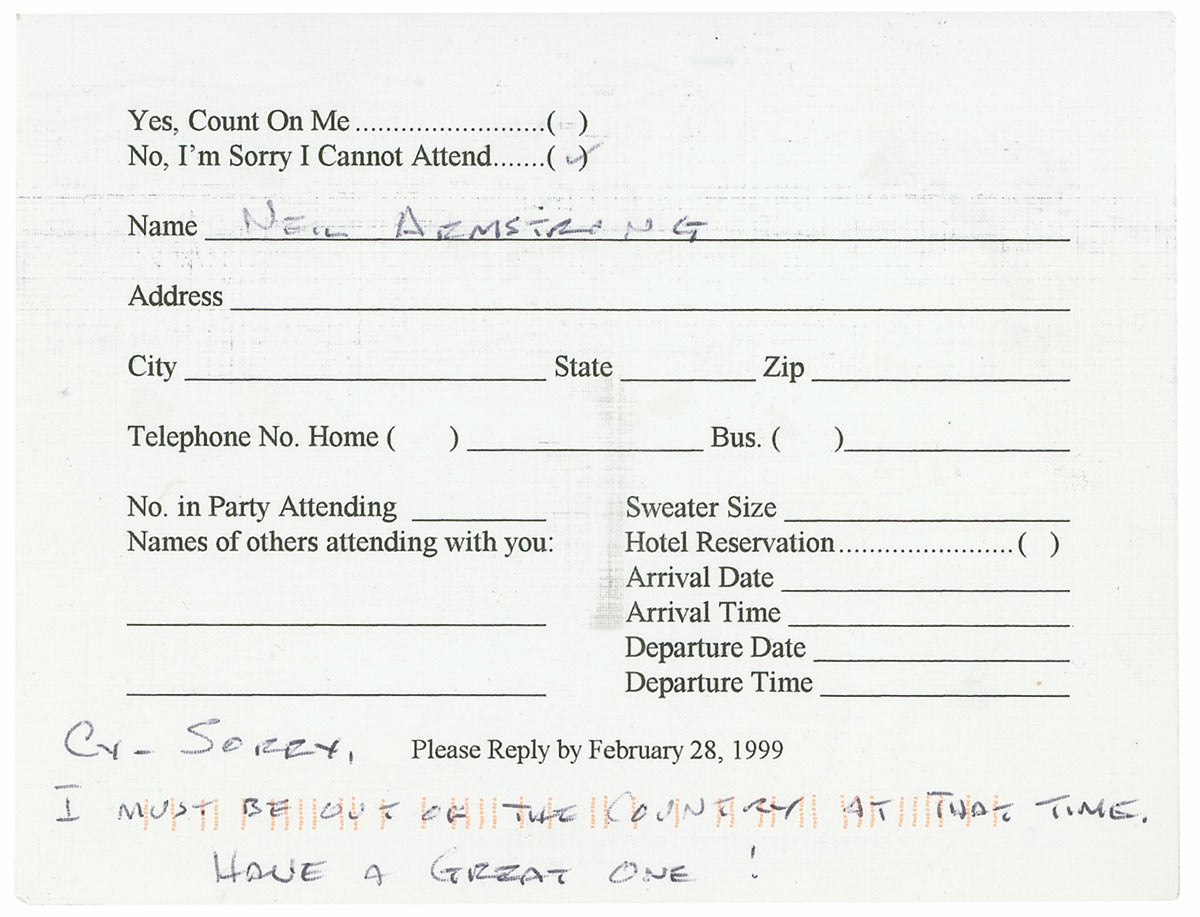 Yes, Count On Me.........................( )
No, I'm Sorry I Cannot Attend.......(✓)
Name NEIL ARMSTRONG
Address
City State Zip
Telephone No. Home ( ) Bus. ( )
No. in Party Attending Sweater Size
Names of others attending with you: Hotel Reservation.......................( )
Arrival Date
Arrival Time
Departure Date
Departure Time
CY- SORRY, Please Reply by February 28, 1999
I MUST BE OUT OF THE COUNTRY AT THAT TIME.
HAVE A GREAT ONE !